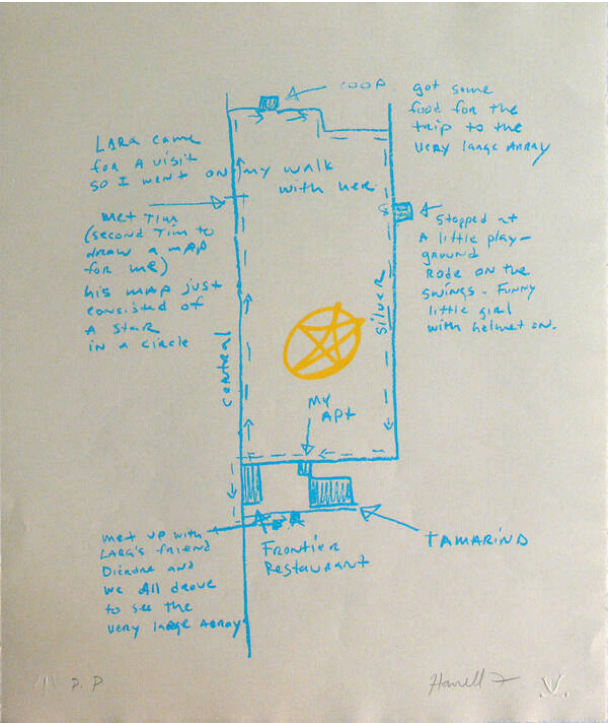 COOP
got some
food for the
trip to the
very large ARRAY
LARA came
for A visit
so I went on my walk
with her
met Tim
(second Tim to
draw a map
for me)
his map just
consisted of
A Star
in a circle
Stopped at
A little play-
ground
Rode on the
swings. Funny
little girl
with helmet on.
CENTRAL
SILVER
MY
APt
met up with
LARA's friend
and
we All drove
to see the
very large ARRAY
Frontier
Restaurant
TAMARIND
P.P